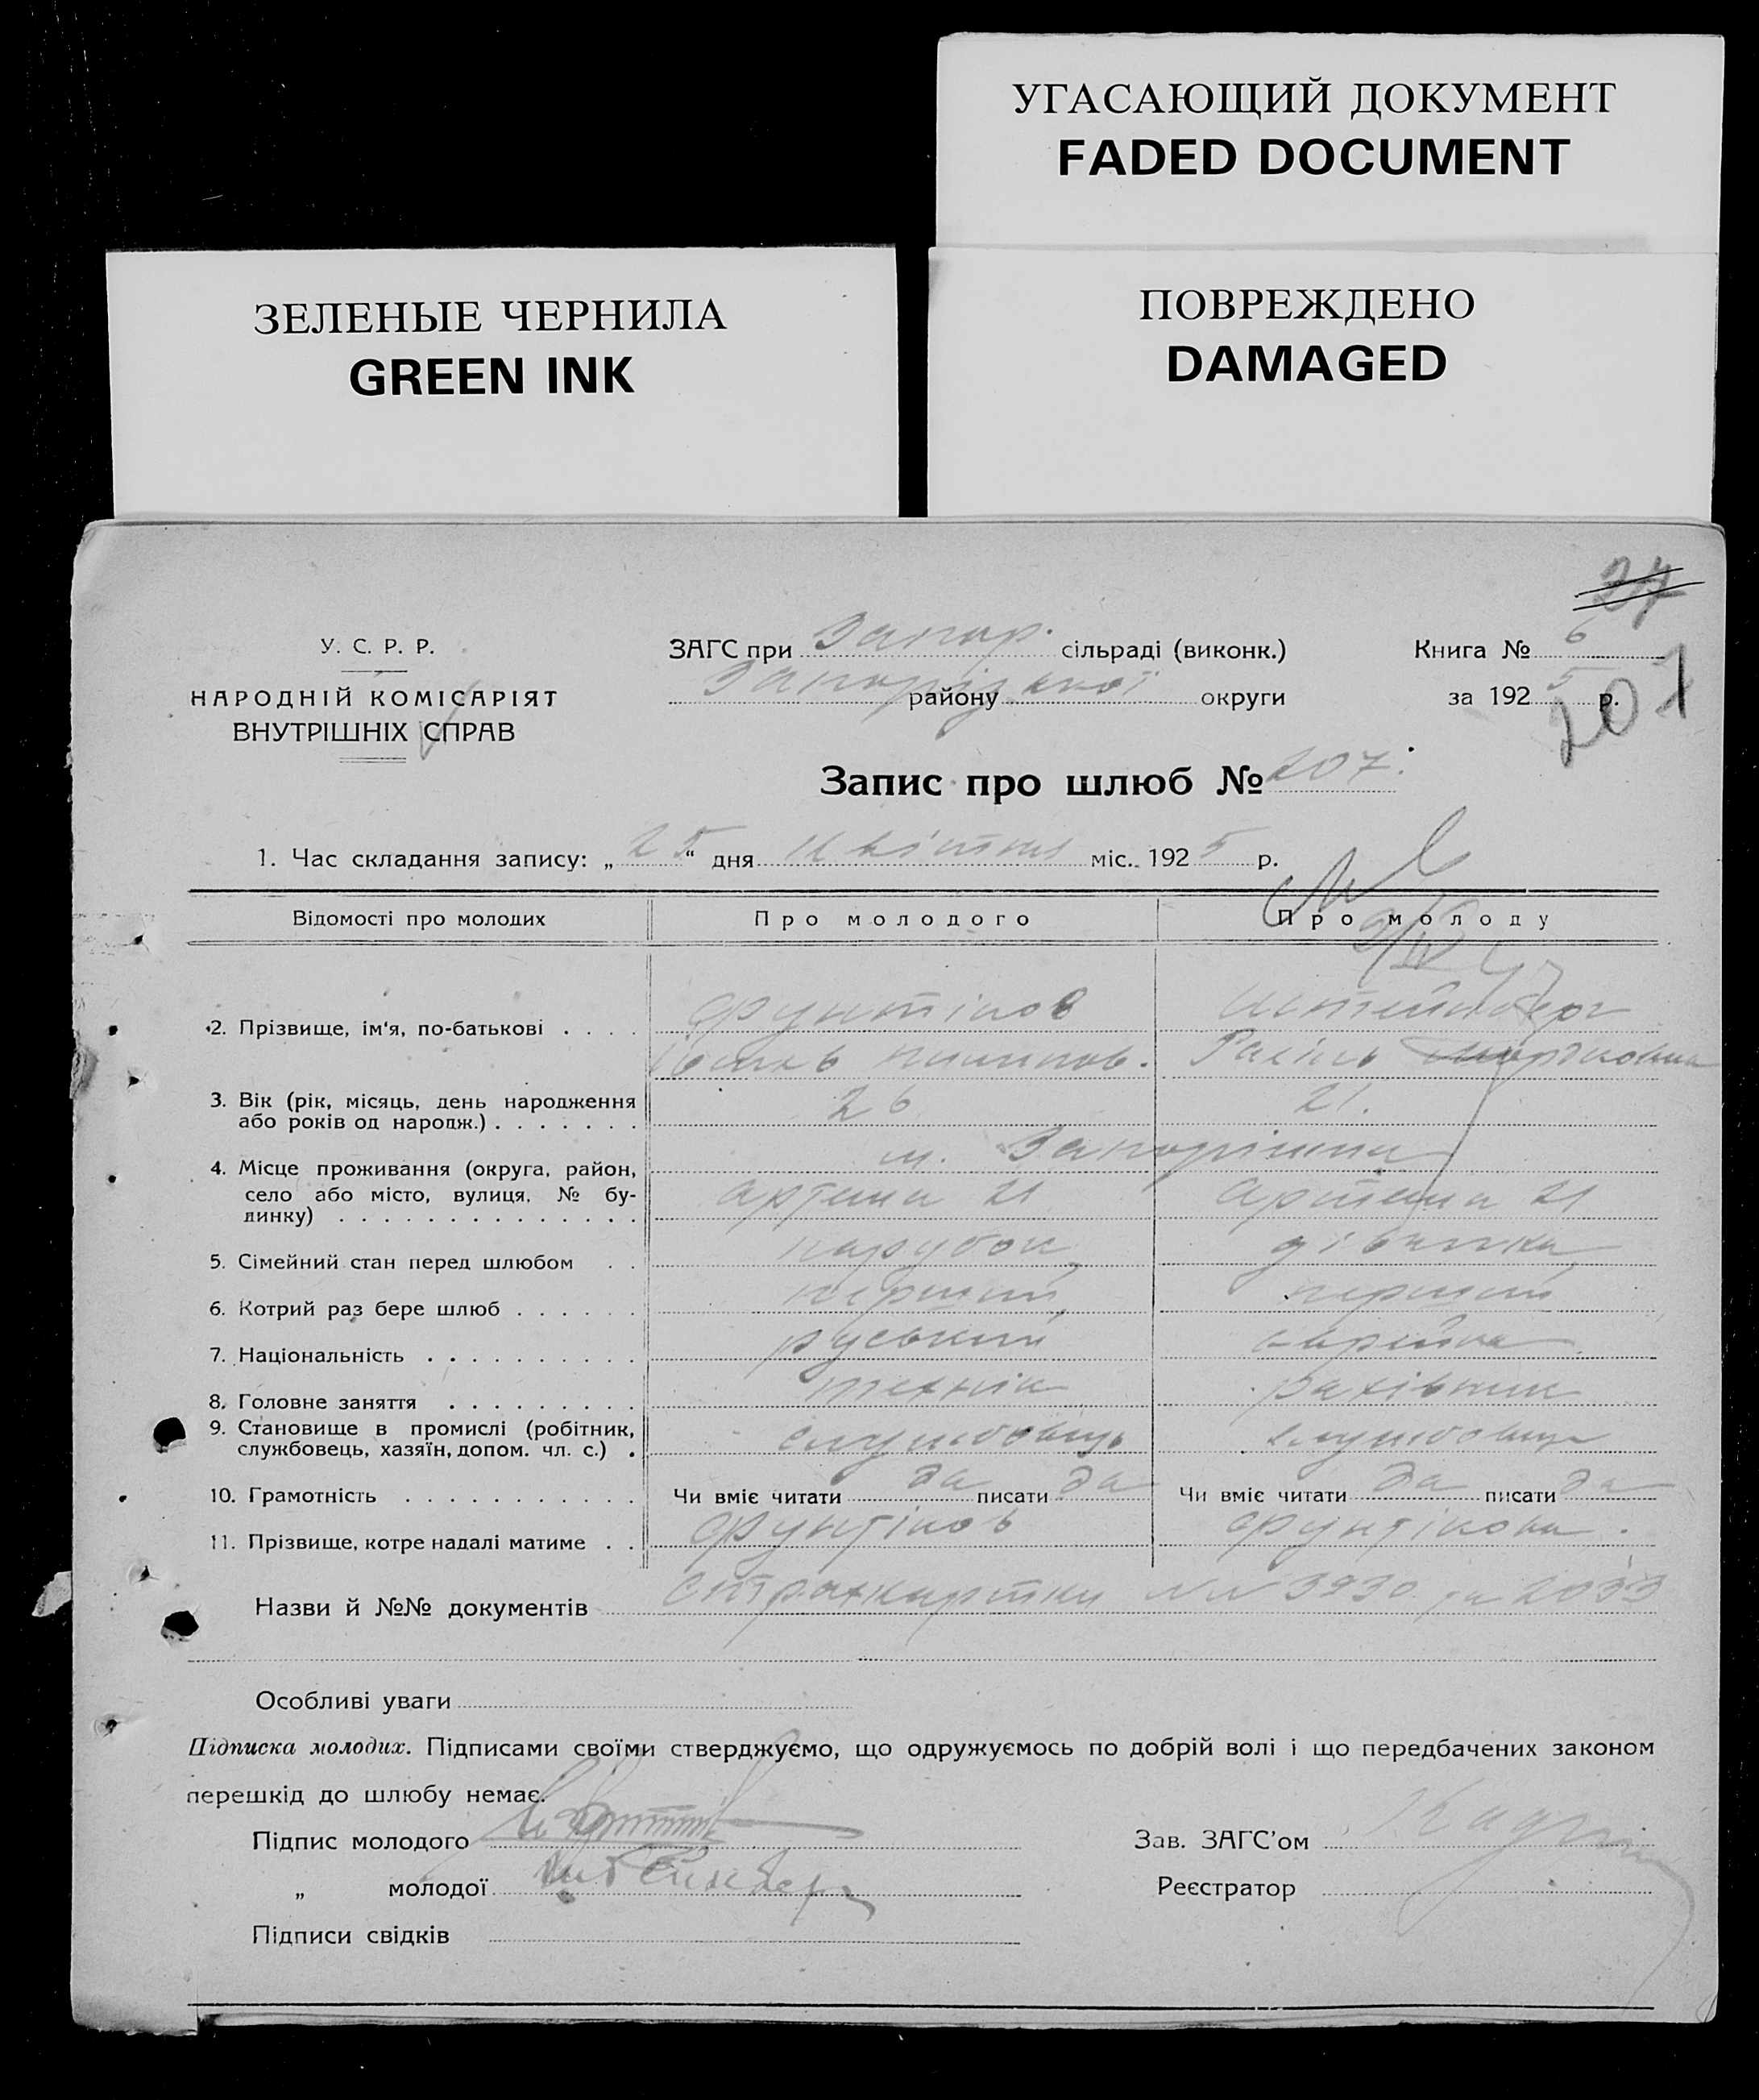 УГАСАЮЩИЙ ДОКУМЕНТ
FADED DOCUMENT
ЗЕЛЕНЫЕ ЧЕРНИЛА
GREEN INK
ПОВРЕЖДЕНО
DAMAGED
27
У. С. Р. Р.
НАРОДНІЙ КОМІСАРІЯТ
ВНУТРІШНІХ СПРАВ
ЗАГС при Запор. сільраді (виконк.)
Запорізької району округи
Книга № 6
за 1925 р.
207
Запис про шлюб № 207.
1. Час складання запису: „25“ дня квітня міс. 1925 р.
Відомості про молодих Про молодого Про молоду
2. Прізвище, ім'я, по-батькові . . . . Фунтіков Штейнберг
Пилипов. Рахіль
3. Вік (рік, місяць, день народження
або років од народж.) . . . . . . . 26 21.
4. Місце проживання (округа, район,
село або місто, вулиця, № бу-
динку) . . . . . . . . . . . . . .
м. Запоріжжя
Артема 21 Артема 21
5. Сімейний стан перед шлюбом . . парубок дівчина
6. Котрий раз бере шлюб . . . . . . перший перший
7. Національність . . . . . . . . . . руський еврейка
8. Головне заняття . . . . . . . . . технік рахівник
9. Становище в промислі (робітник,
службовець, хазяїн, допом. чл. с.) . службовець службовець
10. Грамотність . . . . . . . . . . . Чи вміє читати да писати да Чи вміє читати да писати да
11. Прізвище, котре надалі матиме . . Фунтіков Фунтікова.
Назви й №№ документів Страхкартки NN 3930 та 2033
Особливі уваги
Підписка молодих. Підписами своїми стверджуємо, що одружуємось по добрій волі і що передбачених законом
перешкід до шлюбу немає.
Підпис молодого
„ молодої Штейнберг
Підписи свідків
Зав. ЗАГС'ом
Реєстратор